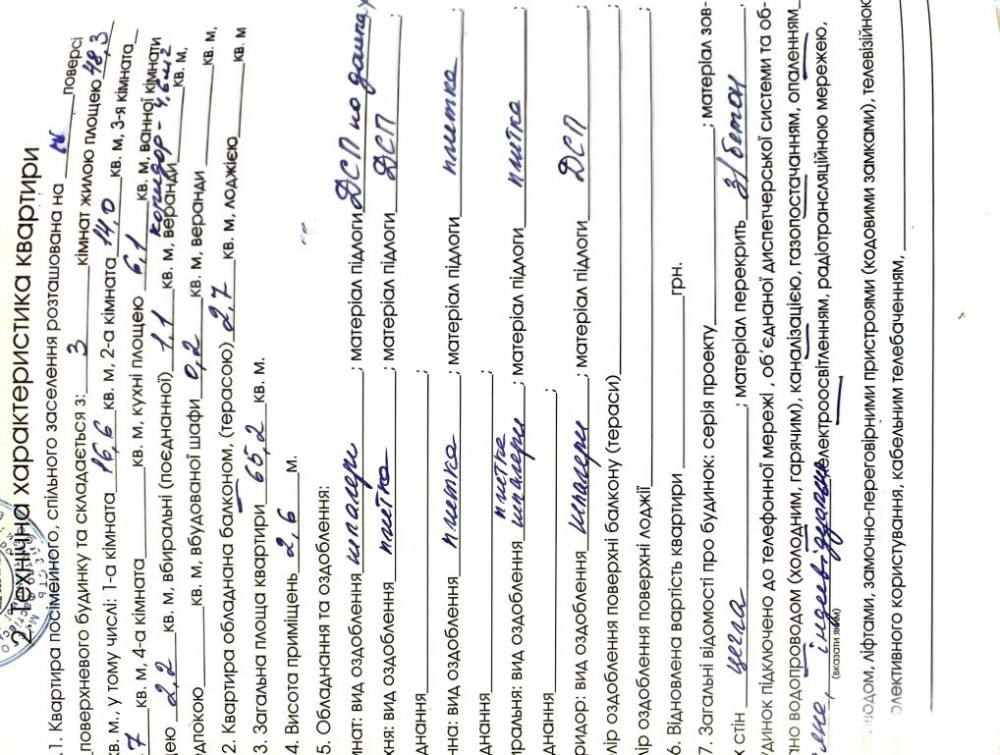 2. Технічна характеристика квартири
.1. Квартира посімейного, спільного заселення розташована на поверсі
поверхневого будинку та складається з: 3 кімнат жилою площею 48,3
кв. м., у тому числі: 1-а кімната 16,6 кв. м, 2-а кімната 14,0 кв. м, 3-я кімната
7 кв. м, 4-а кімната кв. м, кухні площею 6,1 кв. м, ванної кімнати
коридор - 4,6 м2
ею 2,2 кв. м, вбиральні (поєднанної) 1,1 кв. м, веранди кв. м,
кв. м, вбудованої шафи 0,2 кв. м, веранди кв. м,
2. Квартира обладнана балконом, (терасою) 2,7 кв. м, лоджією кв. м
3. Загальна площа квартири 65,2 кв. м.
4. Висота приміщень 2,6 м.
5. Обладнання та оздоблення:
мнат: вид оздоблення шпалери ; матеріал підлоги ДСП по дампах
хня: вид оздоблення плитка ; матеріал підлоги ДСП ;
днання ;
нна: вид оздоблення плитка ; матеріал підлоги плитка ;
днання ;
плитка
иральня: вид оздоблення шпалери ; матеріал підлоги плитка ;
днання ;
ридор: вид оздоблення шпалери ; матеріал підлоги ДСП ;
лір оздоблення поверхні балкону (тераси)
лір оздоблення поверхні лоджії
6. Відновлена вартість квартири грн.
7. Загальні відомості про будинок: серія проекту ; матеріал зов-
х стін цегла ; матеріал перекрить з/бетон
удинок підключено до телефонної мережі , об´єднаної диспетчерської системи та об-
но водопроводом (холодним, гарячим), каналізацією, газопостачанням, опаленням
індивідуальне електроосвітленням, радіотрансляційною мережею,
(вказати яким)
водом, ліфтами, замочно-переговірними пристроями (кодовими замками), телевізійною
олективного користування, кабельним телебаченням,